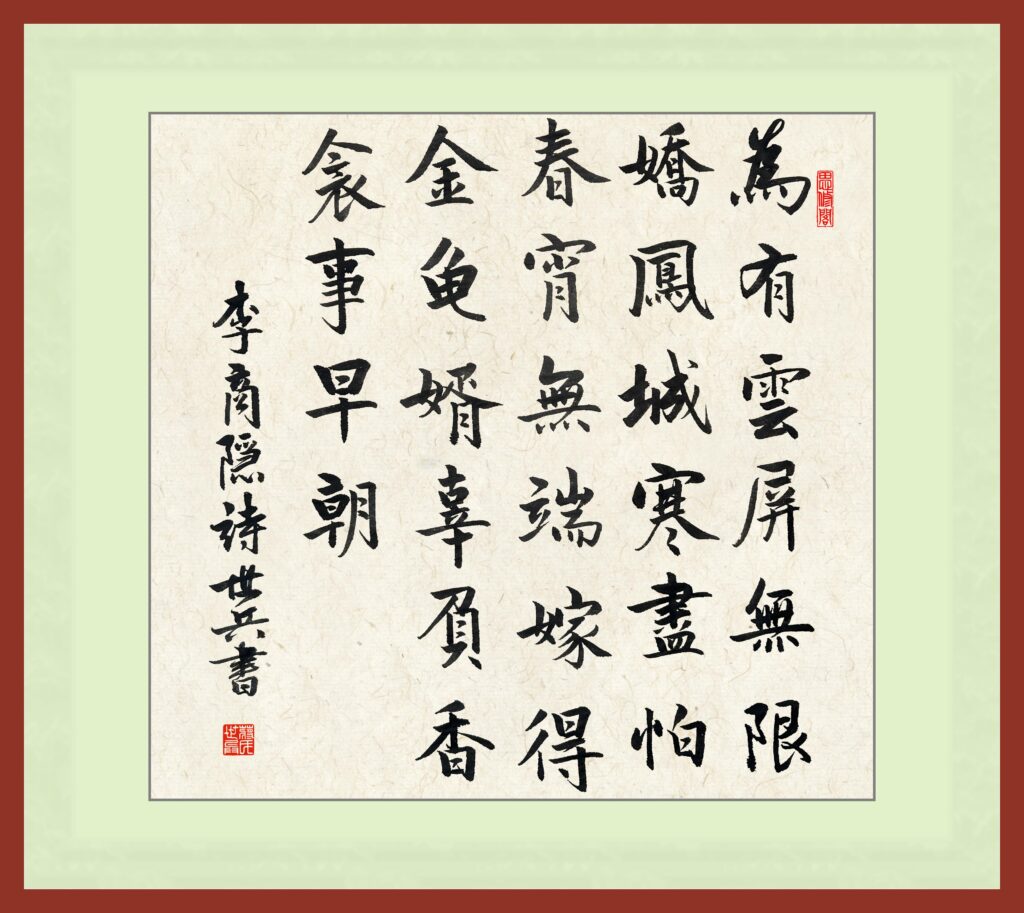 思修閣
為有雲屏無限
嬌鳳城寒盡怕
春宵無端嫁得
金龟婿辜負香
衾事早朝
李商隱詩世兵書